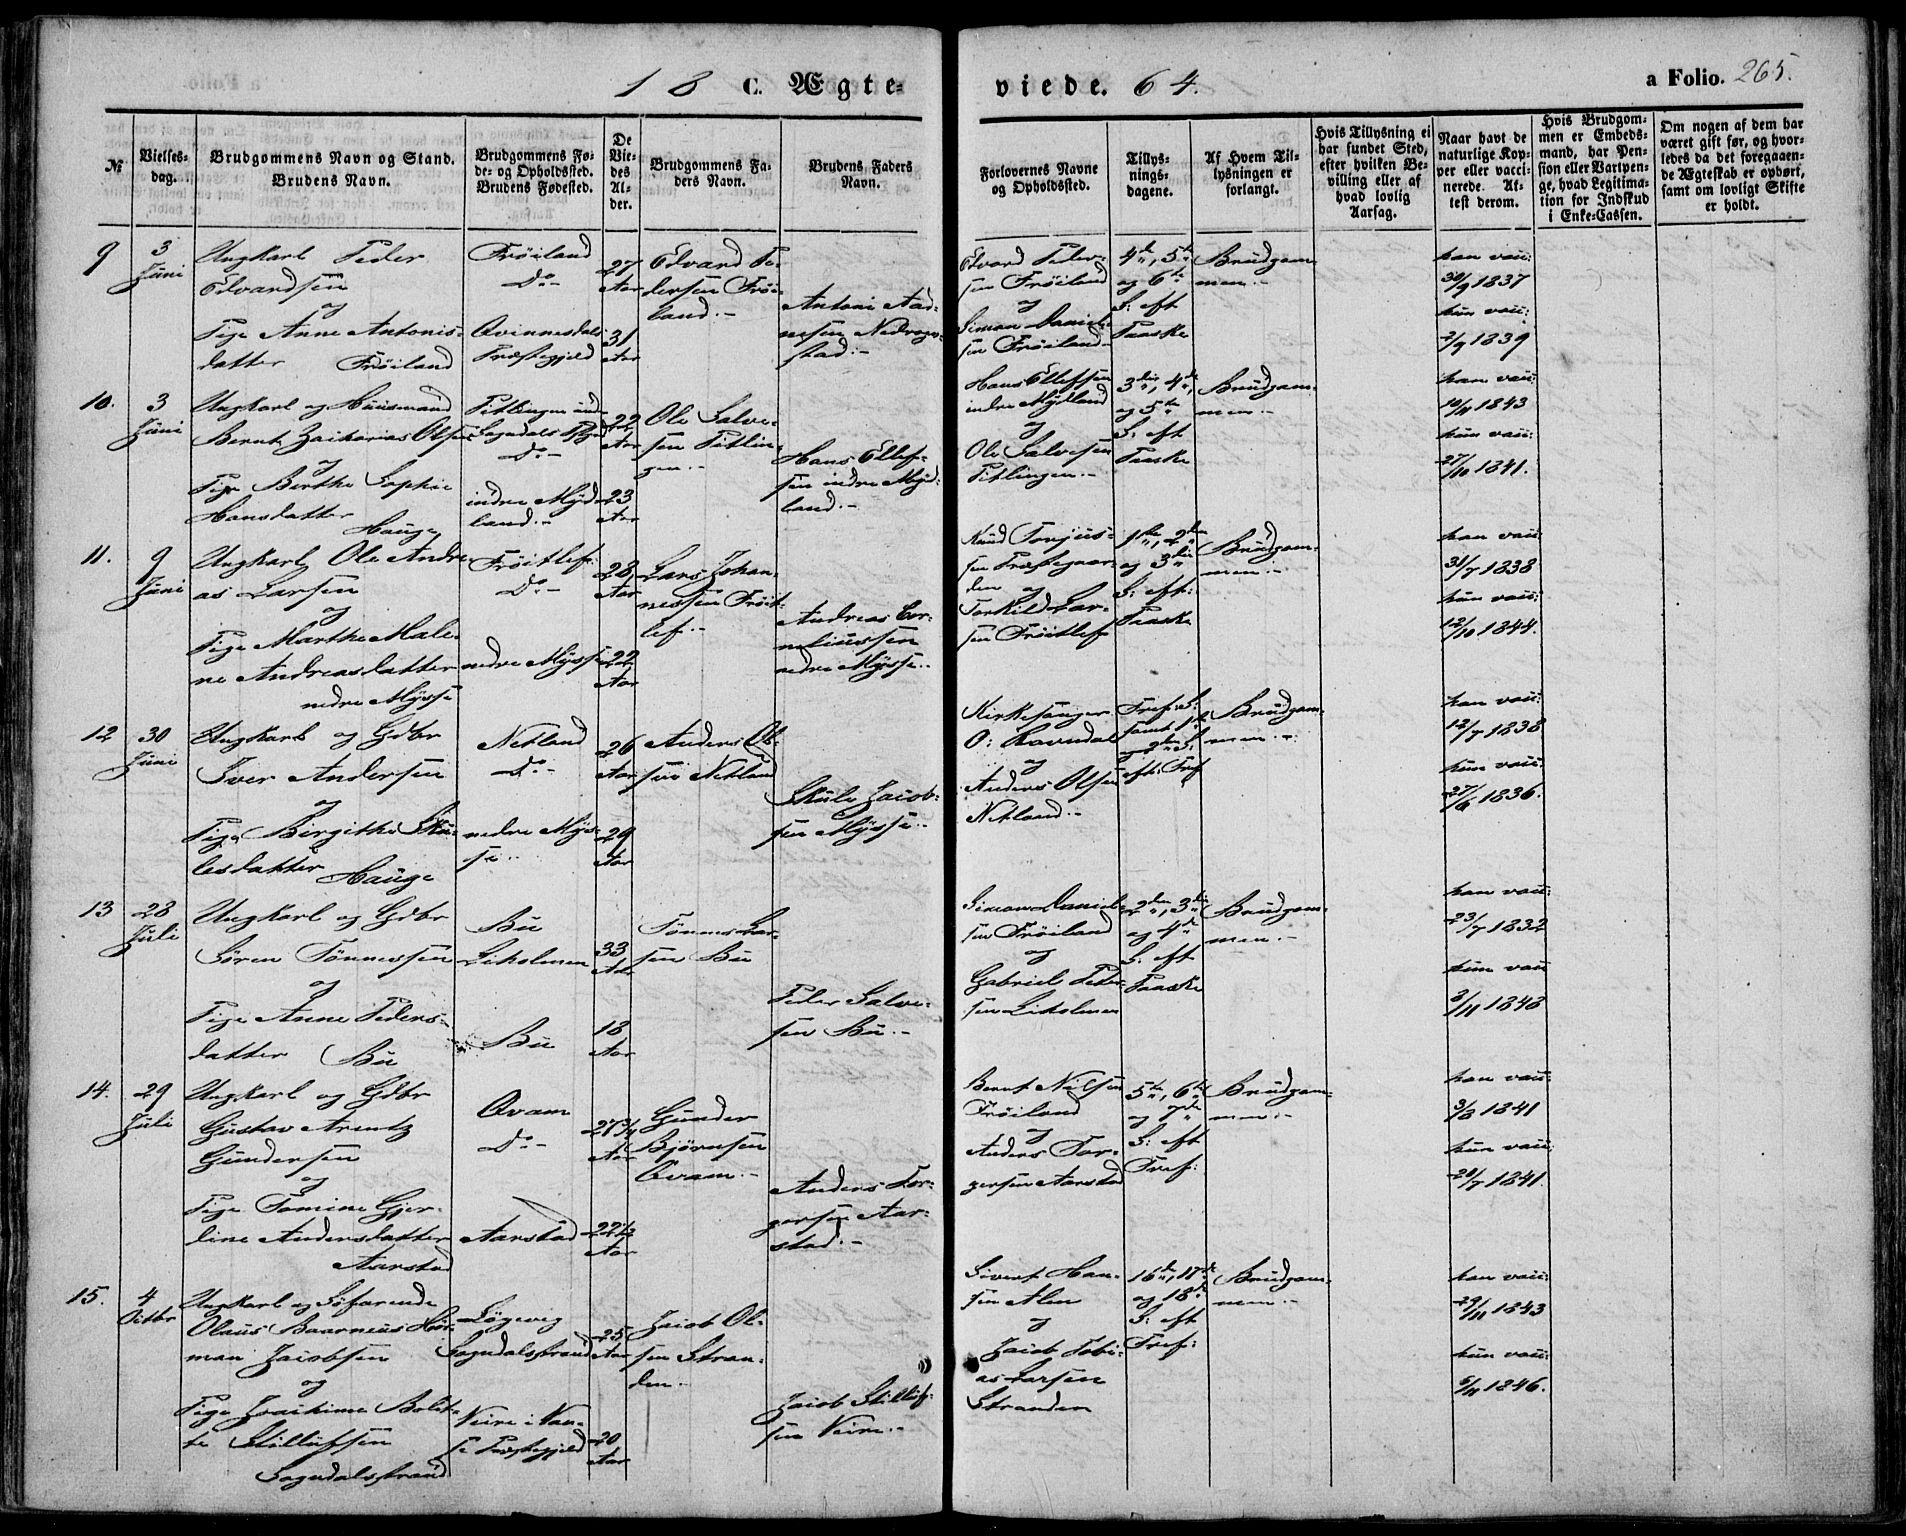 18 C. Ægte-
viede. 64.
a Folio. 265.
№
Vielses-
dag.
Brudgommens Navn og Stand.
Brudens Navn.
Brudgommens Fø-
de- og Opholdssted.
Brudens Fødested.
De
Vie-
des
Al-
der.
Brudgommens Fa-
ders Navn.
Brudens Faders
Navn.
Forlovernes Navne
og Opholdssted.
Tillys-
nings-
dagene.
Af Hvem Til-
lysningen er
forlangt.
Hvis Tillysning ei
har fundet Sted,
efter hvilken Be-
villing eller af
hvad lovlig
Aarsag.
Naar havt de
naturlige Kop-
per eller vacci-
nerede. At-
test derom.
Hvis Brudgom-
men er Embeds-
mand, har Pen-
sion eller Vartpen-
ge, hvad Legitima-
tion for Indskud
i Enke-Cassen.
Om nogen af dem har
været gift før, og hvor-
ledes da det foregaaen-
de Ægteskab er ophørt,
samt om lovligt Skifte
er holdt.
9
3
Juni
Ungkarl Peder
Edvardsen
og
Pige Anne Antonis-
datter Frøiland
Frøiland
Do -
Qvinnesdals
Præstegjeld
27
Aar
31
Aar
Edvard Pe-
dersen Frøi-
land. -
Antoni Aad-
nesen
stad. -
Edvard Peder-
sen Frøiland
og
Simon Daniel-
sen Frøiland
4de, 5te
og 6te
S. eft
Paaske
Brudgom-
men. -
han vac:
30/9 1837
hun vac:
2/9 1839
10.
3
Juni
Ungkarl og Huusmand
Bernt Zacharias Olsen
og
Pige Berthe Sophie
Hansdatter
Hauge
Do -
indre Myd-
land. -
22
Aar
23
Aar
Ole Salve-
sen Titlin-
gen. -
Hans Ellef-
sen indre Myd-
land. -
Hans Ellefsen
indre Mydland
og
Ole Salvesen
Titlingen. -
3die, 4de,
og 5te
S. eft
Paaske
Brudgom-
men. -
han vac:
10/11 1843
hun vac:
27/10 1841.
11.
9
Juni
Ungkarl Ole Andre-
as Larsen
og
Pige Marthe Male-
ne Andreasdatter
nedre Mysse
Frøitlef
Do -
nedre Mysse
28
Aar
22
Aar
Lars Johan-
nessen Frøit-
lef. -
Andreas Cor-
neliussen
nedre Mysse. -
Knud Tonjus-
sen Præstegaar-
den og
Torkild Lar-
sen Frøitlef
1ste, 2den
og 3die
S. eft:
Paaske
Brudgom-
men. -
han vac:
31/7 1838
hun vac:
12/10 1844.
12
30
Juni
Ungkarl og Gdbr
Iver Andersen
og
Pige Birgithe Sku-
lesdatter Hauge
Netland
Do -
nedre Mys-
se. -
26
Aar
29
Aar
Anders Ol-
sen Netland
Skule Jacob-
sen Mysse. -
Kirkesanger
O: Ravndal
og
Anders Olsen
Netland. -
Tref. S.
samt 1ste
og 2den S.
eft: Tref
Brudgom-
men. -
han vac:
12/7 1838
hun vac:
27/6 1836.
13
28
Juli
Ungkarl og Gdbr
Søren Tønnessen
og
Pige Anne Peders-
datter Bu
Bu
Liholmen
Bu
33
Aar
18
Aar
Tønnes Lar-
sen Bu
Peder Salve-
sen Bu. -
Simon Daniel-
sen Frøiland
og
Gabriel Peder-
sen Liholmen
2den, 3die
og 4de
S. eft
Paaske
Brudgom-
men. -
han vac:
23/7 1832
hun vac
3/11 1848
14.
29
Juli
Ungkarl og Gdbr
Gustav Arentz
Gundersen
og
Pige Tomine Gjer-
line Andersdatter
Aarstad
Qvam
Do -
Aarstad
27 3/4
Aar
22 1/2
Aar
Gunder
Bjørnsen
Qvam. -
Anders Tor-
gersen Aar-
stad. -
Bernt Nilsen
Frøiland
og
Anders Tor-
gersen Aarstad
5te, 6te
og 7de
S: eft
Tref:
Brudgom-
men. -
han vac:
3/8 1841
hun vac:
20/7 1841.
15.
4
Octbr
Ungkarl og Søfarende
Olaus
man Jacobsen
og
Pige Joachime Bolet-
te Stillufsen
Sogndalsstrand
Løgevig
Sogndalsstrand
Præstegjeld
25
Aar
20
Aar
Jacob Ol-
sen Stran-
den. -
Jacob Stilluf-
sen
Sivert Han-
sen Alen
og
Jacob Tobi-
as Larsen
Stranden
16de, 17de
og 18de
S: eft
Tref:
Brudgom-
men. -
han vac:
29/11 1843
hun vac:
5/11 1846.